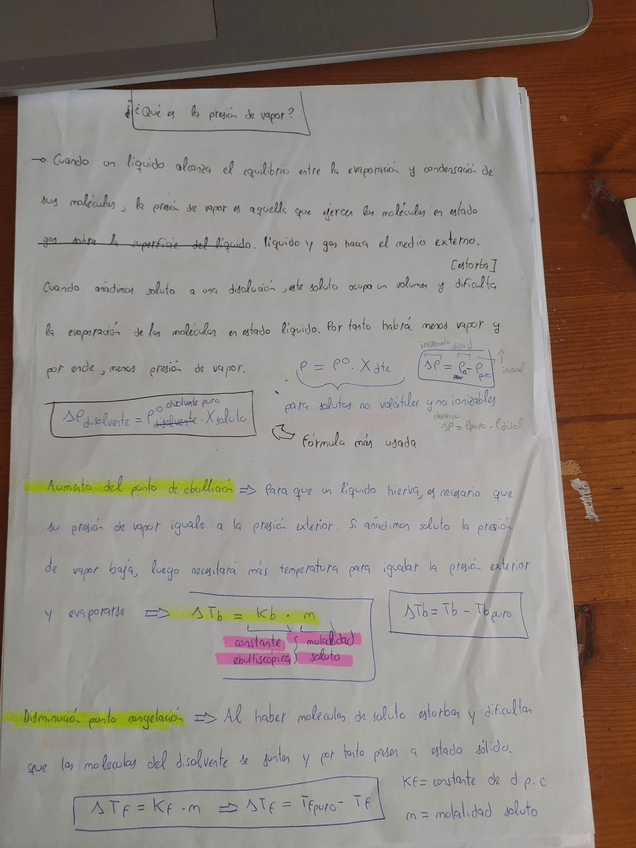 ¿Qué es la presión de vapor?
→ Cuando un líquido alcanza el equilibrio entre la evaporación y condensación de
sus moléculas, la presión de vapor es aquella que ejercen las moléculas en estado
gas sobre la superficie del líquido. líquido y gas hacia el medio externo.
[estorba]
Cuando añadimos soluto a una disolución, este soluto ocupa un volumen y dificulta
la evaporación de las moléculas en estado líquido. Por tanto habrá menos vapor y
por ende, menos presión de vapor.
P = P° · Xdte
para solutos no volátiles y no ionizables
ΔP = Ppuro - Pdisol.
ΔPdisolvente = P° disolvente puro · Xsoluto
Fórmula más usada
Aumento del punto de ebullición ⇒ Para que un líquido hierva, es necesario que
su presión de vapor iguale a la presión exterior. Si añadimos soluto la presión
de vapor baja, luego necesitará más temperatura para igualar la presión exterior
y evaporarse ⇒ ΔTb = Kb · m
ΔTb = Tb - Tbpuro
constante molalidad
ebulliscópica soluto
Disminución punto congelación ⇒ Al haber moleculas de soluto estorban y dificultan
que las moleculas del disolvente se junten y por tanto pasen a estado sólido.
Kf = constante de d.p.c
ΔTf = Kf · m ⇒ ΔTf = Tfpuro - Tf
m = molalidad soluto